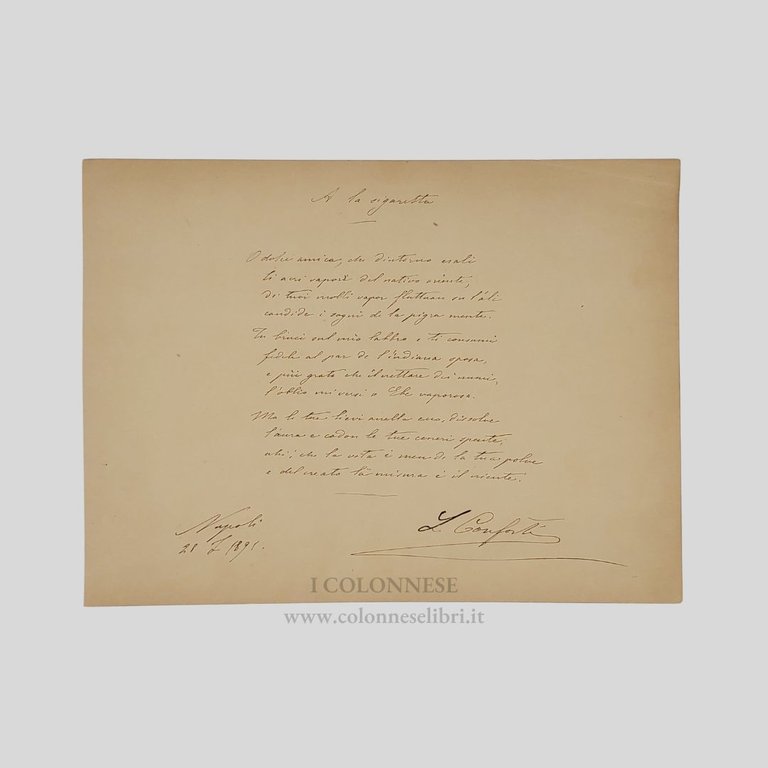 A la sigaretta
O dolce amica, che d'intorno esali
li acri vapori del nativo oriente,
da tuoi molli vapor fluttuan su l'ali
candide i sogni de la pigra mente.
Tu bruci sul mio labbro e ti consumi
fidele al par de l'indiana sposa,
e più grato che il nettare dei numi,
l'oblio mi versi o Ebe vaporosa.
Ma le tue lievi anella ecco, dissolve
l'aura e cadon le tue ceneri spente,
ahi! che la vita è men de la tua polve
e del creato la misura è il niente.
Napoli
28 1891.
L. Conforti
I COLONNESE
www.colonneselibri.it